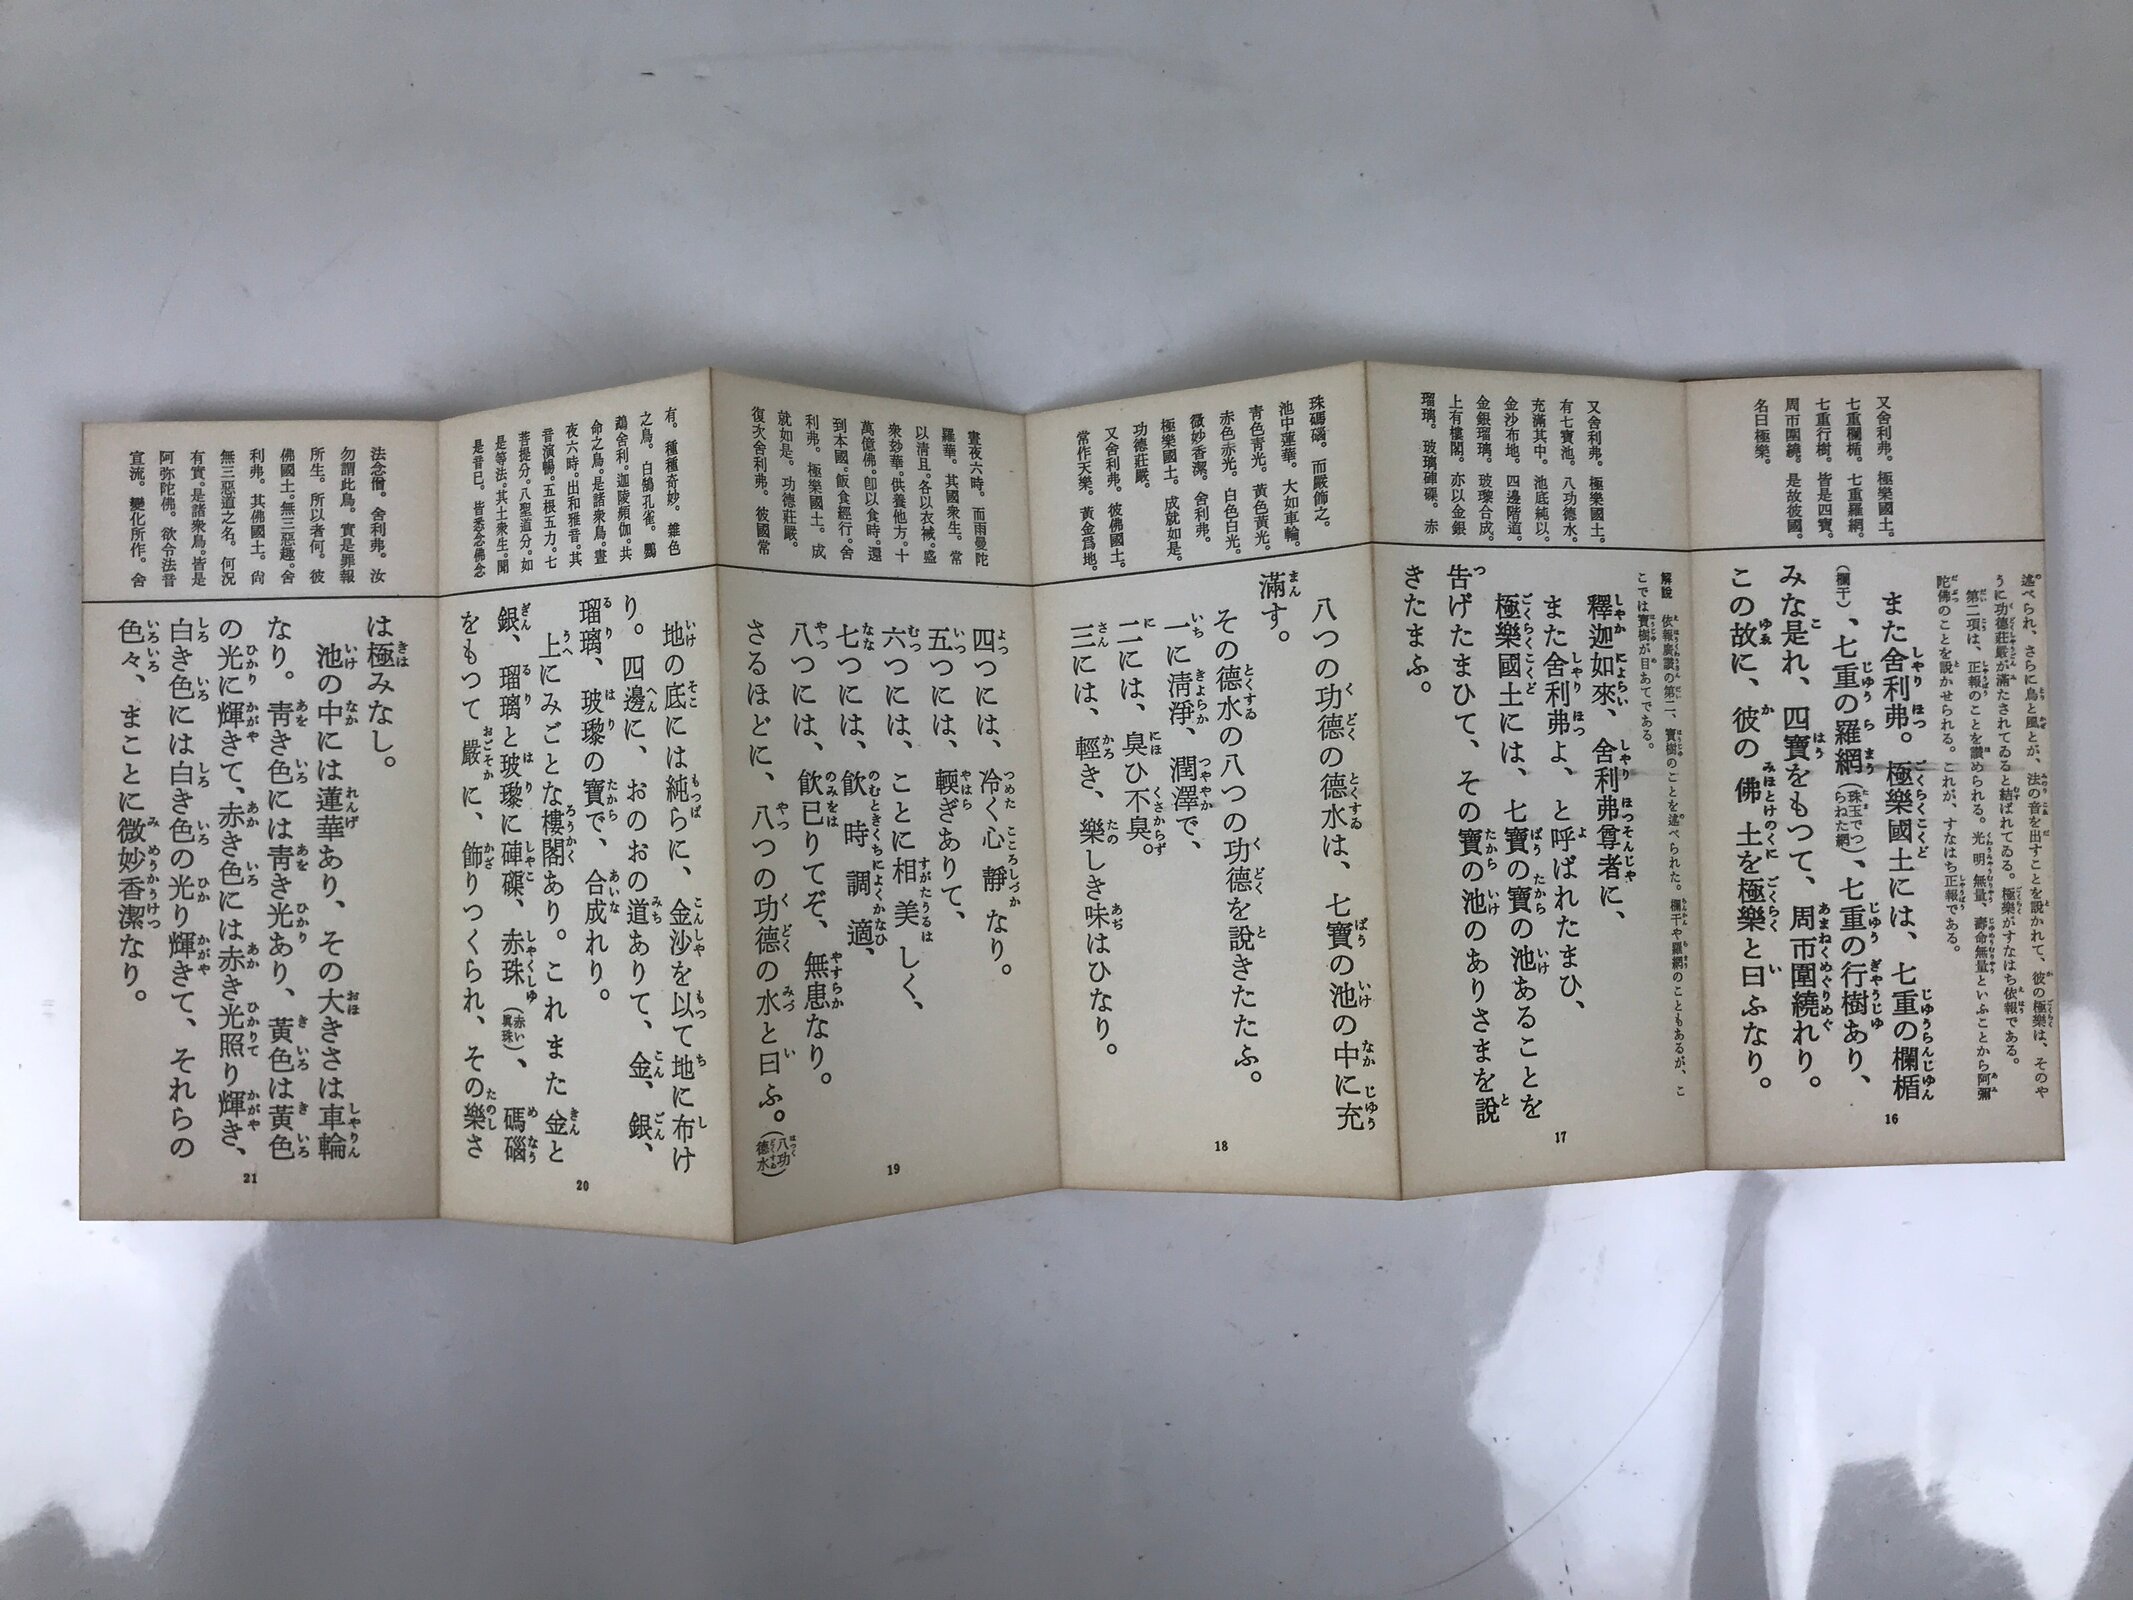 又舍利弗。極樂國土。
七重欄楯。七重羅網。
七重行樹。皆是四寶。
周帀圍繞。是故彼國。
名曰極樂。
述べられ、さらに鳥と風とが、法の音を出すことを說かれて、彼の極樂は、そのや
うに功德莊嚴が滿たされてゐると結ばれてゐる。極樂がすなはち依報である。
第二項は、正報のことを讚められる。光明無量、壽命無量といふことから阿彌
陀佛のことを說かせられる。これが、すなはち正報である。
また舍利弗。極樂國土には、七重の欄楯
(欄干)、七重の羅網(珠玉でつらねた網)、七重の行樹あり、
みな是れ、四寶をもつて、周帀圍繞れり。
この故に、彼の佛土を極樂と曰ふなり。
16
又舍利弗。極樂國土。
有七寶池。八功德水。
充滿其中。池底純以。
金沙布地。四邊階道。
金銀瑠璃。玻瓈合成。
上有樓閣。亦以金銀
瑠璃。玻璃硨磲。赤
解說 依報廣讚の第二、寶樹のことを述べられた。欄干や羅網のこともあるが、こ
こでは寶樹が目あてである。
釋迦如來、舍利弗尊者に、
また舍利弗よ、と呼ばれたまひ、
極樂國土には、七寶の寶の池あることを
吿げたまひて、その寶の池のありさまを說
きたまふ。
17
珠碼碯。而嚴飾之。
池中蓮華。大如車輪。
靑色靑光。黃色黃光。
赤色赤光。白色白光。
微妙香潔。舍利弗。
極樂國土。成就如是。
功德莊嚴。
又舍利弗。彼佛國土。
常作天樂。黃金爲地。
八つの功德の德水は、七寶の池の中に充
滿す。
その德水の八つの功德を說きたたふ。
一に淸淨、潤澤で、
二には、臭ひ不臭。
三には、輕き、樂しき味はひなり。
18
晝夜六時。而雨曼陀
羅華。其國衆生。常
以淸旦。各以衣裓。盛
衆妙華。供養他方。十
萬億佛。卽以食時。還
到本國。飯食經行。舍
利弗。極樂國土。成
就如是。功德莊嚴。
復次舍利弗。彼國常
四つには、冷く心靜なり。
五つには、輭ぎありて、
六つには、ことに相美しく、
七つには、飮時調適、
八つには、飮已りてぞ、無患なり。
さるほどに、八つの功德の水と曰ふ。(八功德水)
19
有。種種奇妙。雜色
之鳥。白鵠孔雀。鸚
鵡舍利。迦陵頻伽。共
命之鳥。是諸衆鳥。晝
夜六時。出和雅音。其
音演暢。五根五力。七
菩提分。八聖道分。如
是等法。其土衆生。聞
是音已。皆悉念佛念
地の底には純らに、金沙を以て地に布け
り。四邊に、おのおの道ありて、金、銀、
瑠璃、玻瓈の寶で、合成れり。
上にみごとな樓閣あり。これまた金と
銀、瑠璃と玻瓈に硨磲、赤珠(赤い眞珠)、碼碯
をもつて嚴に、飾りつくられ、その樂さ
20
法念僧。舍利弗。汝
勿謂此鳥。實是罪報
所生。所以者何。彼
佛國土。無三惡趣。舍
利弗。其佛國土。尙
無三惡道之名。何況
有實。是諸衆鳥。皆是
阿弥陀佛。欲令法音
宣流。變化所作。舍
は極みなし。
池の中には蓮華あり、その大きさは車輪
なり。靑き色には靑き光あり、黃色は黃色
の光に輝きて、赤き色には赤き光照り輝き、
白き色には白き色の光り輝きて、それらの
色々、まことに微妙香潔なり。
21